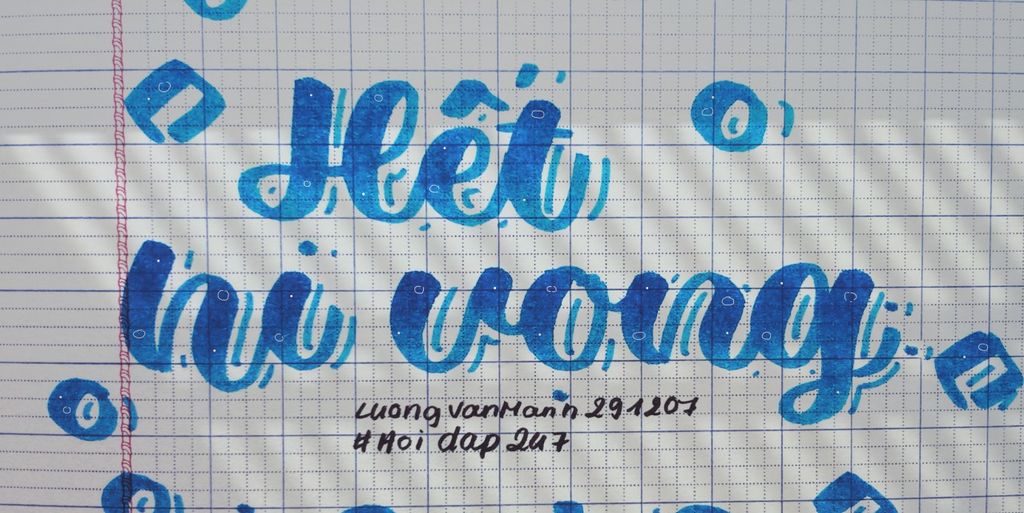 Hết
hi vọng
LuongVanManh 291207
# Hoi dap 247